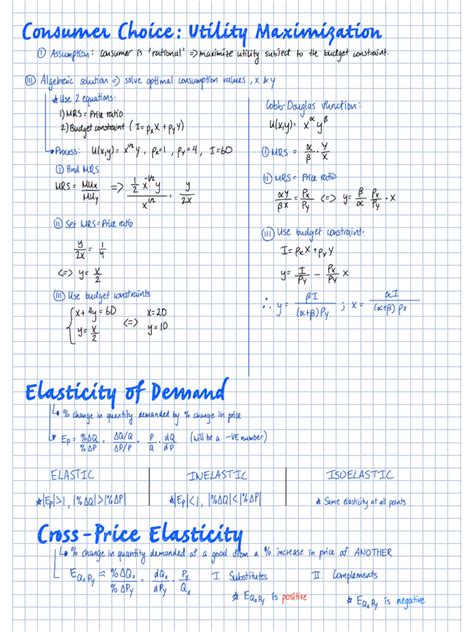 Consumer Choice: Utility Maximization
Ⓘ Assumption: Consumer is 'rational' => maximize utility subject to the budget constraint.
ⓘⓘⓘ Algebraic solution => solve optimal consumption values, x & y
* Use 2 equations:
1) MRS = Price ratio
2) Budget constraint (I = PxX + PyY)
Process: U(x,y) = x^1/2 y, Px=1, Py=4, I=60
Ⓘ find MRS
MRS = MUx/MUy => (1/2 x^-1/2 y)/(x^1/2) = y/2x
ⓘⓘ Set MRS = Price ratio
y/2x = 1/4
<=> y = x/2
ⓘⓘⓘ Use budget constraints
{ x + 4y = 60
y = x/2
<=>
x = 20
y = 10
Cobb-Douglas function:
U(x,y) = x^α y^β
Ⓘ MRS = α/β · Y/X
ⓘⓘ MRS = Price ratio
αY/βX = Px/Py <=> y = β/α · Px/Py · X
ⓘⓘⓘ Use budget constraint:
I = PxX + PyY
y = I/Py − Px/Py X
∴ y = βI/(α+β)Py ; x = αI/(α+β)Px
Elasticity of Demand
↳ % change in quantity demanded by % change in price
Ep = %ΔQ/%ΔP = ΔQ/Q / ΔP/P = P/Q · dQ/dP (will be a -VE number)
ELASTIC
INELASTIC
ISOELASTIC
* |Ep|>1, |%ΔQ|>|%ΔP|
* |Ep|<1, |%ΔQ|<|%ΔP|
* Same elasticity at all points
Cross-Price Elasticity
↳ % change in quantity demanded of a good from a % increase in price of ANOTHER
EQxPy = %ΔQx/%ΔPy = dQx/dPy · Py/Qx
I Substitutes
II Complements
* EQxPy is positive
* EQxPy is negative